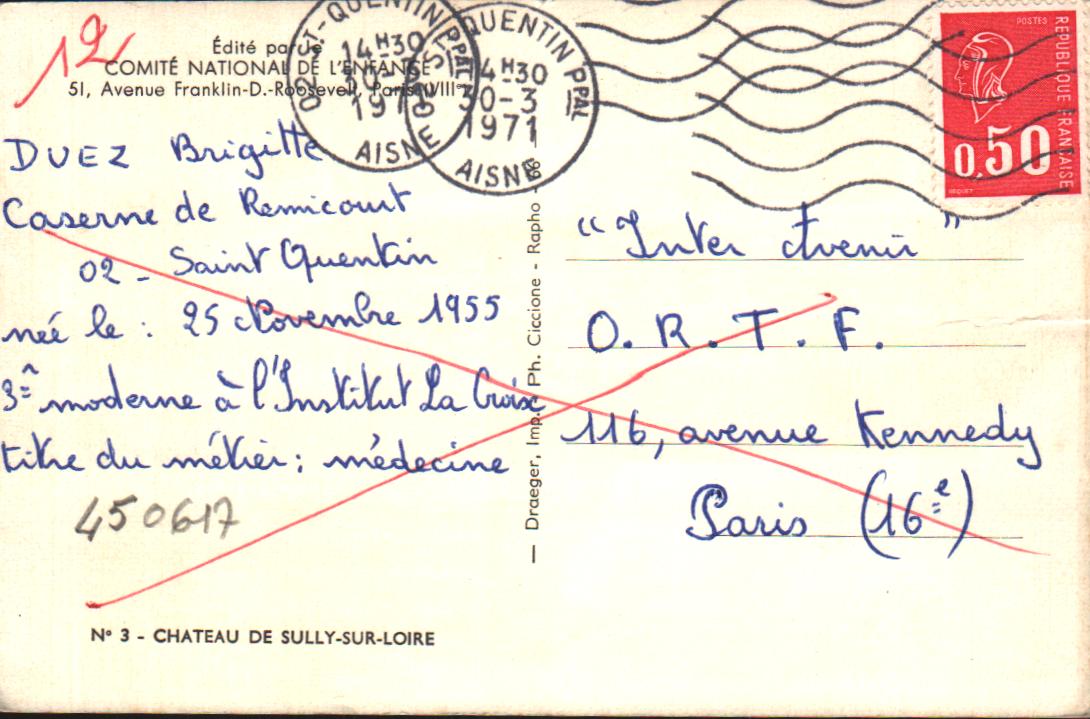 12
Édité par le
COMITÉ NATIONAL DE L'ENFANCE
51, Avenue Franklin-D.-Roosevelt, Paris (VIII
DUEZ Brigitte
Caserne de Remicourt
02 - Saint Quentin
née le : 25 Novembre 1955
3è moderne à l'Institut La Croix
titre du métier : médecine
450617
N° 3 - CHATEAU DE SULLY-SUR-LOIRE
— Draeger, Imp. Ph. Ciccione - Rapho - 66 —
02 ST-QUENTIN PPAL
14H30
1971
AISNE
QUENTIN PPAL
14H30
30-3
1971
AISNE
POSTES
RÉPUBLIQUE FRANÇAISE
0,50
BEQUET
"Inter Avenir"
O. R. T. F.
116, avenue Kennedy
Paris (16e)